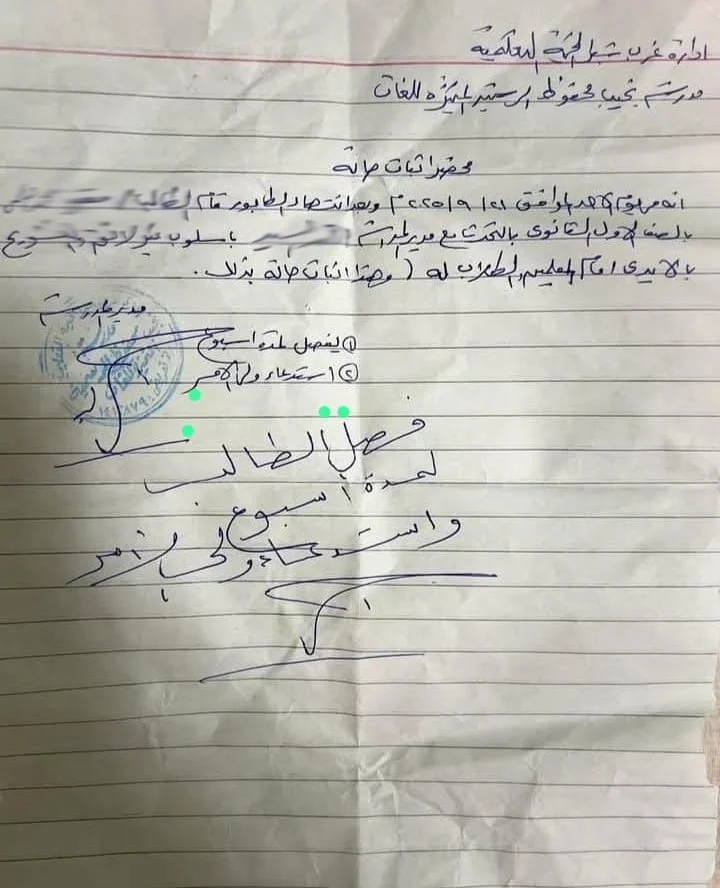 ادارة غرب شبرا الخيمة التعليمية
مدرسة نجيب محفوظ الرسمية المتميزة للغات
محضر اثبات حالة
انه في يوم الاحد الموافق ٢١ / ٩ / ٢٠٢٥ م وبعد انتهاء الطابور قام الطالب /
بالصف الاول الثانوى بالتحدث مع مدير المدرسة باسلوب غير لائق
بالايدى امام المعلمين والطلاب له ( وهذا اثبات حالة بذلك .
مدير المدرسة
① يفصل لمدة اسبوع
② استدعاء ولى الامر
فصل الطالب
لمدة أسبوع
واستدعاء ولى الأمر